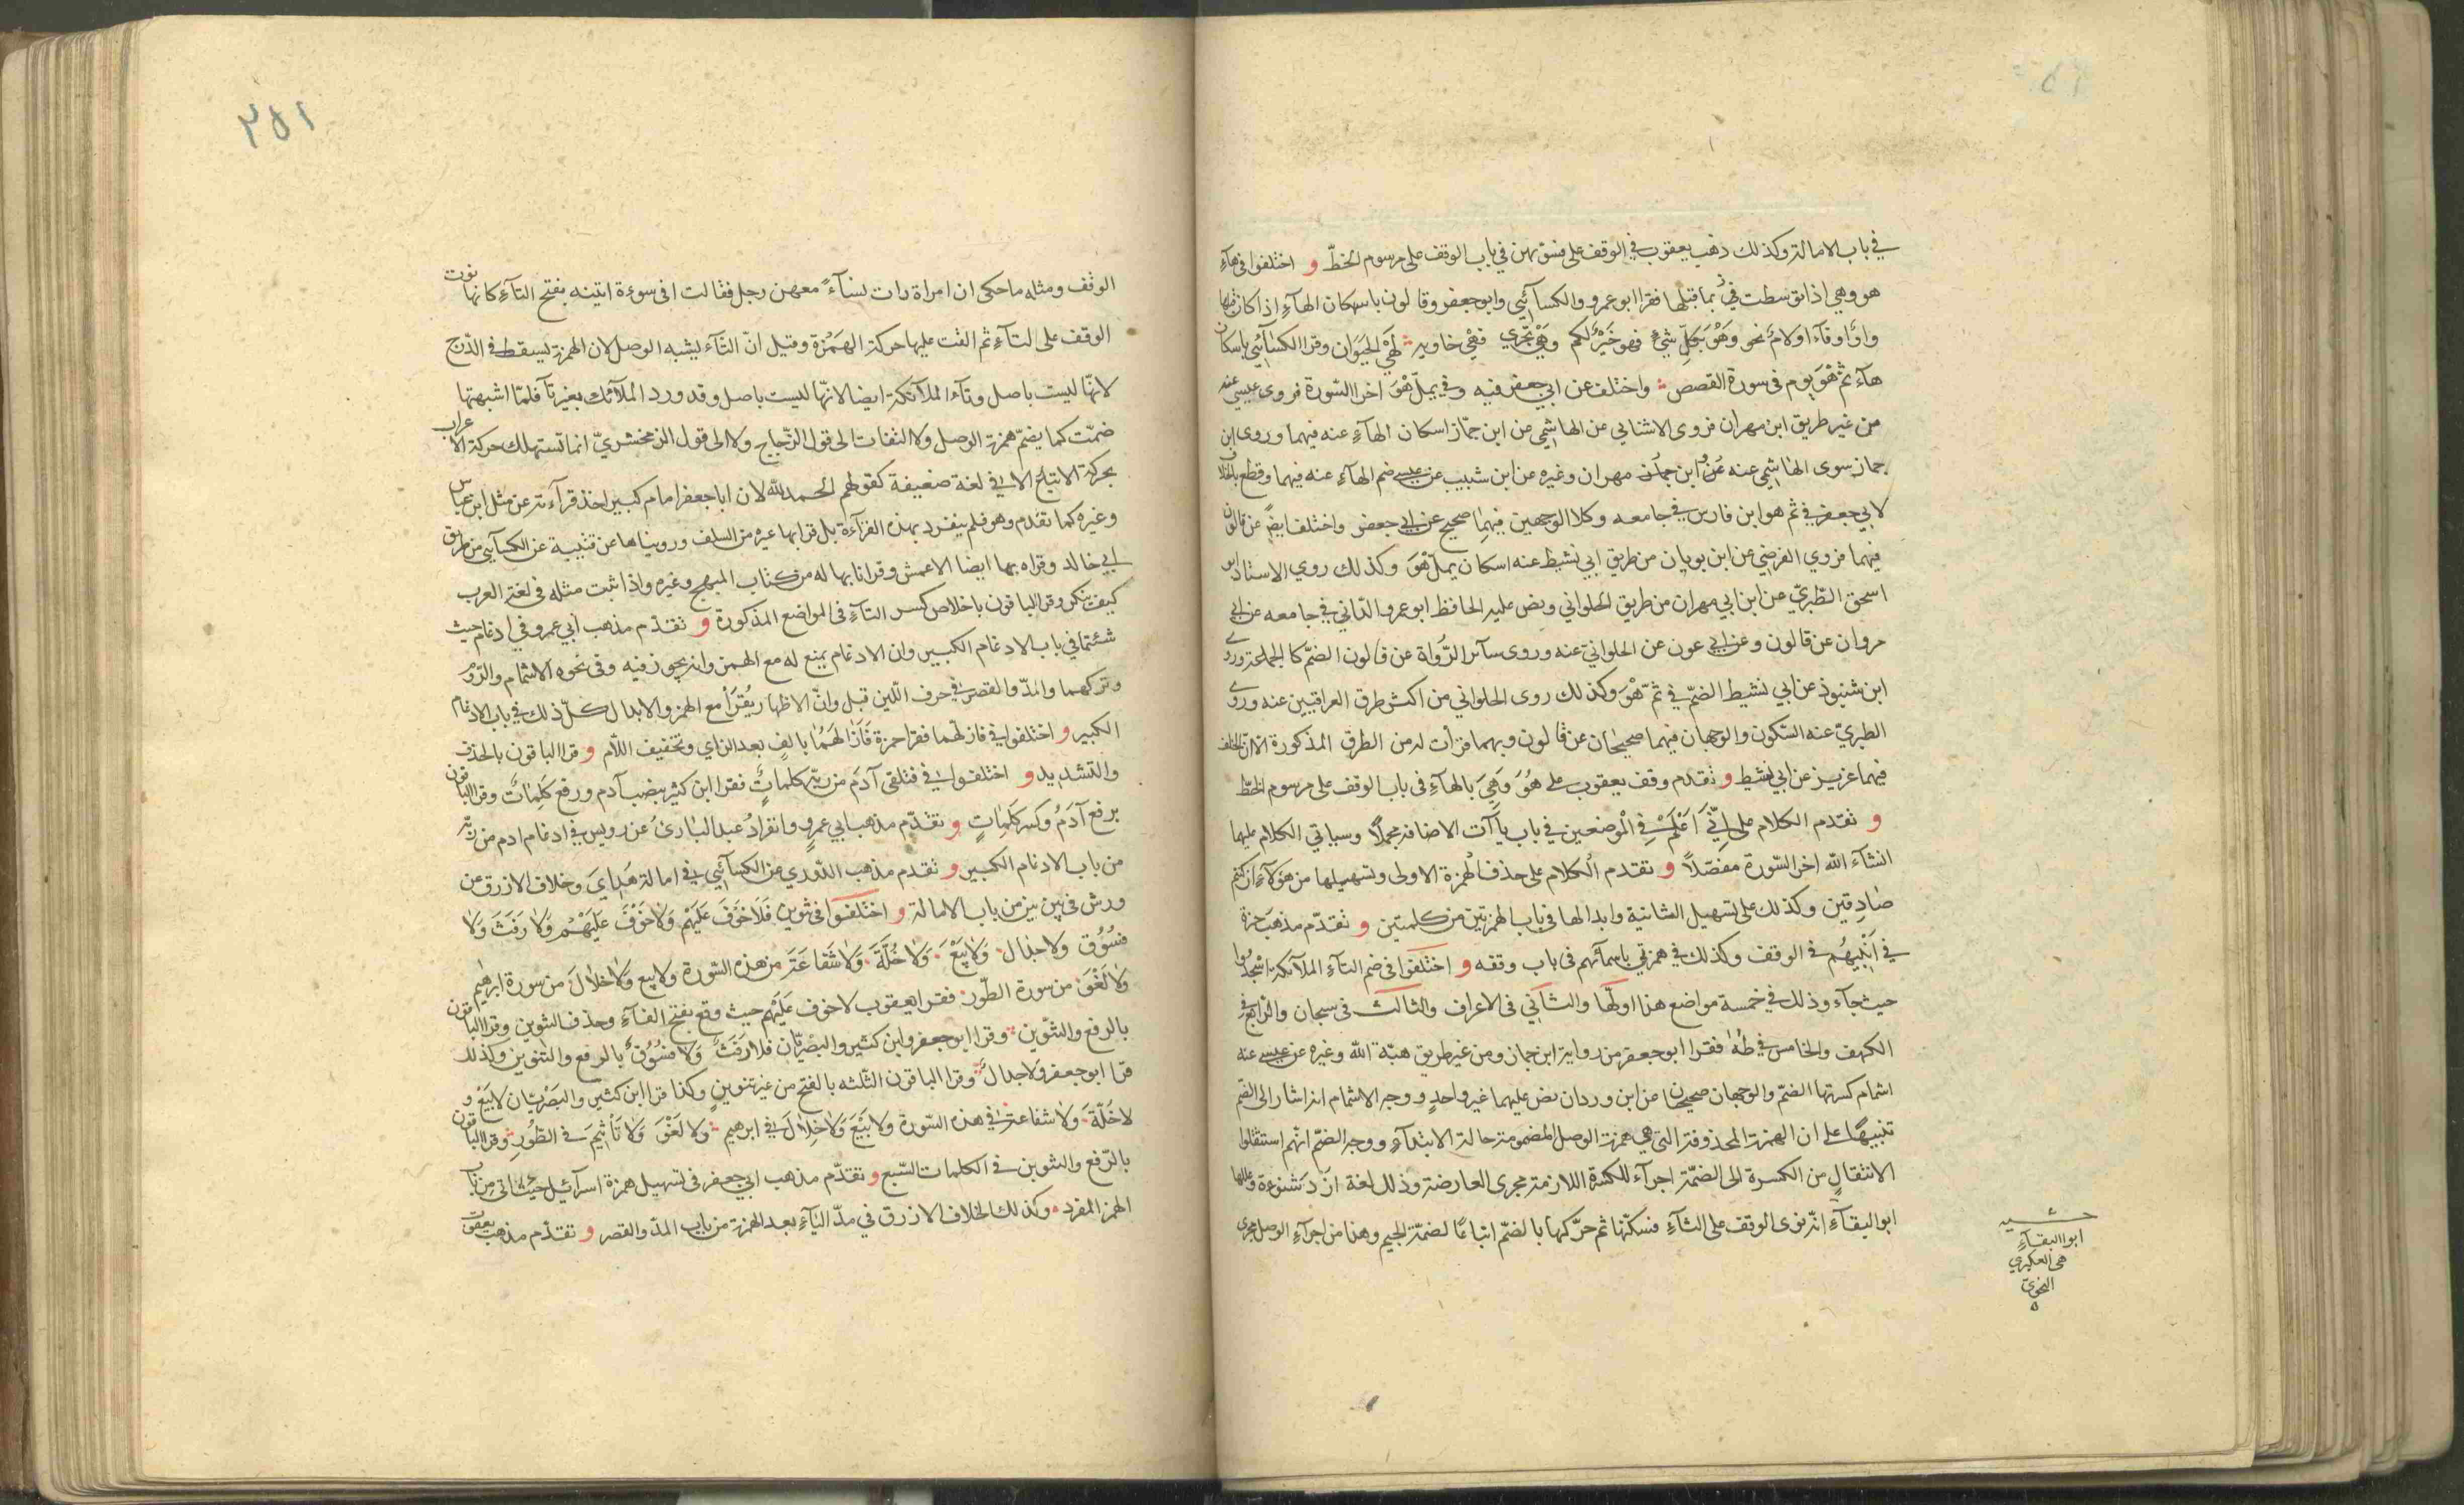 في باب الامالة وكذلك ذهب يعقوب في الوقف على فسوّيهن في باب الوقف على مرسوم الخطّ و اختلفوا فى هآءِ
هو وهي اذا توسطت فيُ بما قبلها فقرا ابو عمرو والكسآئيي وابو جعفر وقالون باسكان الهآءِ اذا كان قبلها
واوٌ او فآء اولامٌ نحو وَهْوَ بِكلِّ شيءٍ فهو خَيْرٌ لكم وَهْيَ تجْري فهْيَ خاويه لَهْيَ الحَيَوان وقرا الكسآئي باسكان
هآء ثمّ هْوَ يوم فى سورة القصص واختلف عن ابي جعفر فيه وفي يملّ هْوَ اخر السّورة فروى عيسي عنه
من غير طريق ابن مهران فروى الاشنانى عن الهاشمي عن ابن جمّاز اسكان الهآءِ عنه فيهما وروى ابن
جماز سوى الهاشمي عنه عن ابن جماز مهران وغيره عن ابن شبيب عن عيسى ضم الهآء عنه فيهما وقطع بالخلاف
لابي جعفر في ثم هو ابن فارس في جامعه وكلا الوجهين فيهما صحيح عن ابى جعفر واختلف ايضً عن قالون
فيهما فروي الفرضي عن ابن بويان من طريق ابي نشيط عنه اسكان يملّ هْوَ وكذلك روي الاستاد ابو
اسحق الطّبريّ عن ابن ابي مهران من طريق الحلواني ونص عليه الحافظ ابو عمرو الدّاني في جامعه عن ابى
مروان عن قالون وعن ابى عون عن الحلوانيّ عنه وروى سآئر الرُّواة عن قالون الضمّ كالجماعة وروى
ابن شنبوذ عن ابي نشيط الضمّ في ثمّ هْوَ وكذلك روى الحلواني من اكثر طرق العراقيين عنه وروى
الطبريّ عنه السّكون والوجهان فيهما صحيحان عن قالون وبهما قرأت له من الطرق المذكورة الا ان الخلف
فيهما عزيز عن ابي نشيط و تقدم وقف يعقوب على هُوَ وَهِيَ بالهآءِ فى باب الوقف على مرسوم الخطّ
و تقدم الكلام على اِنِّي اَعْلَمُ في الْموضعين في باب يآآت الاضافة مجملًا وسياتي الكلام عليها
انشآء الله اخر السّورة مفصّلاً و تقدم الكلام على حذف الهمزة الاولى وتسهيلها من هؤلآءِ ان كنتم
صَادِقين وكذلك على تسهيل الثانية وابدالها فى باب الهمزتين من كلمتين و تقدّم مذهب حمزة
في اَنْبِيهُم فى الوقف وكذلك في همزتي باسمآئهم فى باب وقفه و اختلفوا فى ضم التآءِ الملآئكة اسْجُدُوا
حيث جآء وذلك في خمسة مواضع هذا اولّها والثّانى في الاعراف والثالث فى سبحان والرّابع فى
الكهف والخامس في طه فقرا ابو جعفر من رواية ابن جماز ومن غير طريق هبة الله وغيره عن عيسى عنه
اشمام كسرتها الضمّ والوجهان صحيحان عن ابن وردان نصّ عليهما غير واحدٍ ووجه الاشمام انه اشار الى الضم
تنبيهًا على ان الهمزة المحذوفة التي هي همزة الوصل المضمومة حالة الابتدآءِ ووجه الضمّ انهم استثقلوا
الانتقال من الكسرة الى الضمّة اجرآء للكسرة اللازمة مجرى العارضة وذلك لغة ازد شنوءة وعللها
ابو البقآءِ انّه نوى الوقف على التآءِ فسكنّها ثم حرّكها بالضمّ اتباعًا لضمّة الجيم وهذا من اجرآءِ الوصل مجرى
حشيه
ابو البقآءِ
هى العكبري
النحويّ
٣٥١
الوقف ومثله ما حكى ان امراة رات نسآءً معهن رجل فقالت افى سوءة انتينه بفتح التآءِ كانها نوت
الوقف على التآءِ ثم القت عليها حركة الهَمْزة وقيل انّ التّآء يشبه الوصل لان الهمزة يسقط فى الدّرج
لانهّا ليست باصل وتآء الملآئكة ايضا لانّها ليست باصل وقد ورد الملآئك بغير تآ فلمّا اشبهتها
ضمّت كما يضمّ همزة الوصل ولا التفات الى قول الزّجاج ولا الى قول الزمخشريّ انما تستهلك حركة الاعراب
بحركة الاتباع الا في لغة ضعيفة كقولهم الحمد لله لان ابا جعفر امام كبير اخذ قرآءته عن مثل ابن عباس
وغيره كما تقدم وهو فلم ينفرد بهذه القرآءة بل قرا بها غيره من السلف ورويناها عن قتيبة عن الكسآيي من طريق
ابي خالد وقراه بها ايضا الاعمش وقرانا بها له من كتاب المبهج وغيره واذا ثبت مثله فى لغة العرب
كيف ينكر وقرا الباقون باخلاص كسر التآءِ فى المواضع المذكورة و تقدّم مذهب ابي عمرو في ادغام حيث
شئتما في باب الادغام الكبير وان الادغام يمنع له مع الهمز وانه يجوز فيه وفى نحوه الاشمام والرّوم
وتركهما والمدّ والقصر في حرف اللّين قبل وانّ الاظهار يُقرأ مع الهمز والابدال كلّ ذلك في باب الادغام
الكبير و اختلفوا في فازلّهما فقرا حمزة فَاَزَالَهُمَا بالفٍ بعد الزاي وتخفيف اللاّم و قرا الباقون بالحذف
والتشديد و اختلفوا في فتلقى آدَمُ من ربّه كلماتٍ فقرا ابن كثير بنصب آدم ورفع كَلِمَاتٌ وقرا الباقون
برفع آدَمُ وكسر كلماتٍ و تقدّم مذهب ابي عمرو وانفرادُ عبد البارىُ عن رويس في ادغام ادم من ربّه
من باب الادغام الكبير و تقدم مذهب الدّوري عن الكسآئيّ فى امالة هُدَايَ وخلاف الازرق عن
ورش فى بين بين من باب الامالة و اختلفوا فى تنوين فَلَا خَوْفَ عَلَيْهم وَلَا خَوْفَ عَلَيْهُم وَلَا رَفَثَ وَلَا
فُسُوق ولا جدال وَلَا بَيْعَ وَلَا خُلَّةَ وَلَا شَفَاعَةَ من هذه السّورة ولا بيع وَلَا خلالَ من سورة ابراهيم
ولا لَغْوَ من سورة الطّور فقرا يعقوب لا خوف عَلَيْهم حيث وقع بفتح الفآءِ وحذف التنوين وقرا الباقون
بالرفع والتنّوين وقرا ابو جعفر وابن كثير والبصريّان فلا رَفَثٌ وَلَا فُسُوْقٌ بالرفع والتنوين وكذلك
قرا ابو جعفر ولا جدالٌ وقرا الباقون الثّلثه بالفتح من غير تنوين وكذا قرا ابن كثير والبَصْريّان لا بَيْعَ و
لا خُلّةَ وَلَا شفاعة في هذه السّورة ولا بَيْعَ وَلَا خِلَالَ في ابرهيم ولا لَغْوَ وَلَا تَاْثيمَ فى الطّورِ وقرا الباقون
بالرّفع والتنوين فى الكلمات السّبع و تقدّم مذهب ابي جعفر فى تسهيل همزة اسرآئيل حيث اتى من باب
الهمز المفرد وكذلك الخلاف الازرق في مدّ اليآءِ بعد الهمزة من باب المدّ والقصر و تقدّم مذهب يعقوب